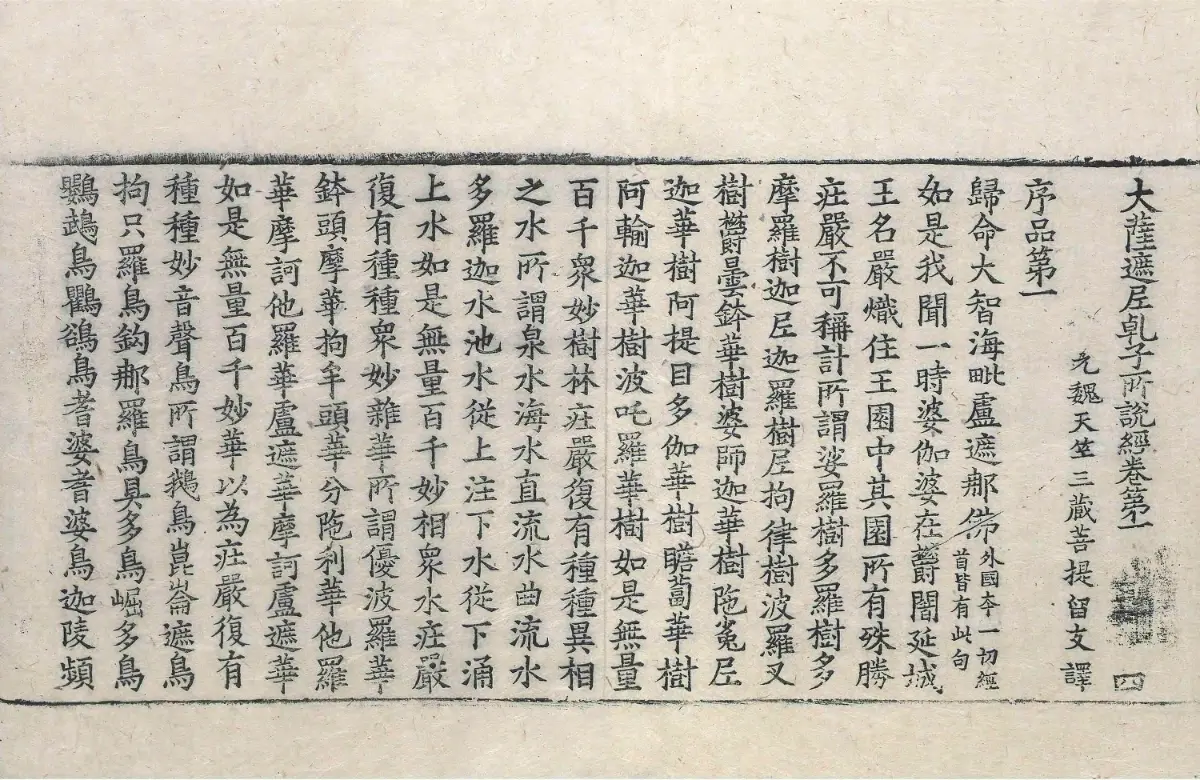 大薩遮尼乹子所説經卷第一 四
元魏天竺三藏菩提留支譯
序品第一
歸命大智海毗盧遮那佛外國本一切經首皆有此句
如是我聞一時婆伽婆在欝闍延城
王名嚴熾住王園中其園所有殊勝
莊嚴不可稱計所謂娑羅樹多羅樹多
摩羅樹迦尼迦羅樹尼拘律樹波羅叉
樹欝曇鉢華樹婆師迦華樹陁㝹尼
迦華樹阿提目多伽華樹瞻蔔華樹
阿輸迦華樹波吒羅華樹如是無量
百千衆妙樹林莊嚴復有種種異相
之水所謂泉水海水直流水曲流水
多羅迦水池水從上注下水從下涌
上水如是無量百千妙相衆水莊嚴
復有種種衆妙雜華所謂優波羅華
鉢頭摩華拘牟頭華分陁利華他羅
華摩訶他羅華盧遮華摩訶盧遮華
如是無量百千妙華以為莊嚴復有
種種妙音聲鳥所謂鵝鳥崑崙遮鳥
拘只羅鳥鈎那羅鳥具多鳥崛多鳥
鸚鵡鳥鸜鵒鳥耆婆耆婆鳥迦陵頻